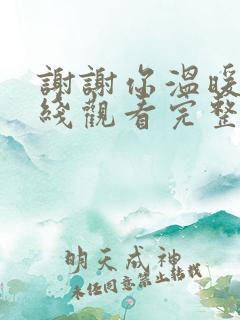 謝謝你溫暖
綫觀看完整
明天成神
未经同意禁止转载